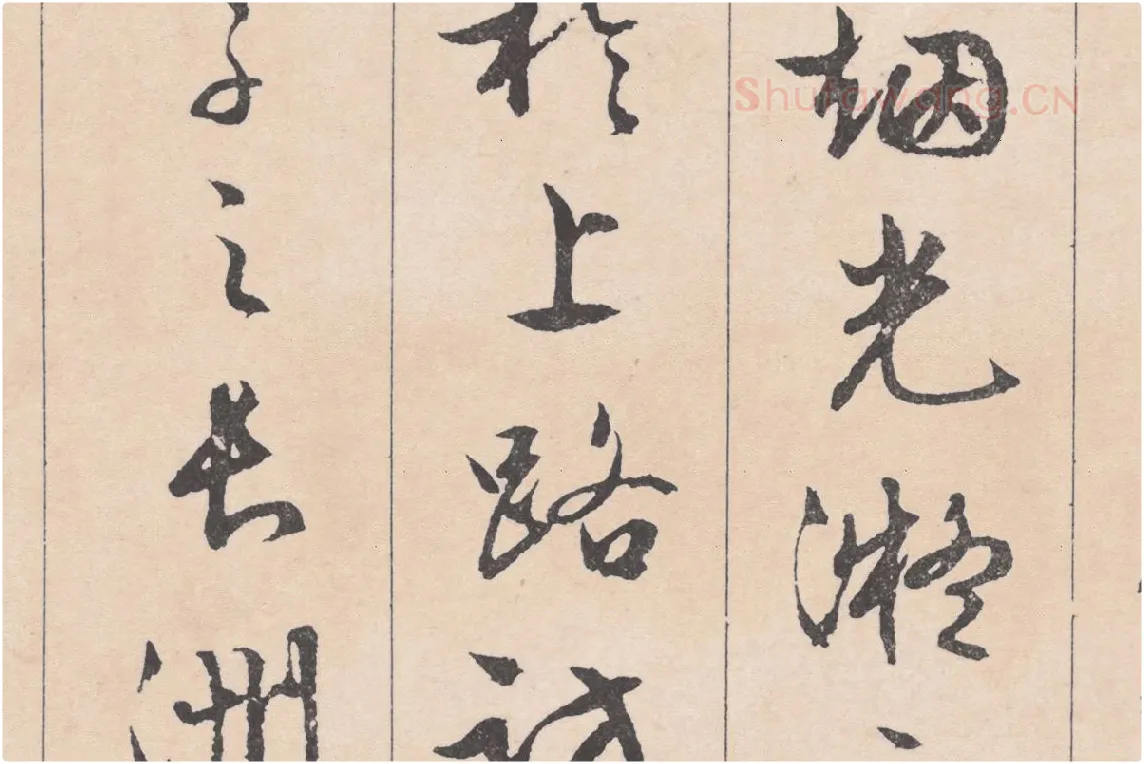 烟光凝
於上路
子之長洲
Shufawang.CN